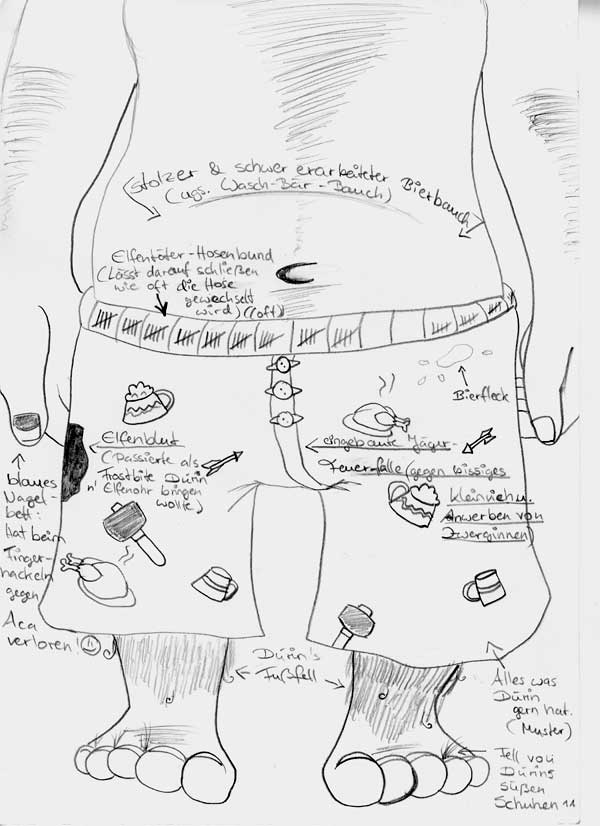 stolzer & schwer erarbeiteter Bierbauch
(ugs. Wasch-Bär-Bauch)
Elfentöter-Hosenbund
(Lässt darauf schließen
wie oft die Hose
gewechselt
wird) (oft)
Bierfleck
Elfenblut
(Passierte als
Frostbite Dúrin
n' Elfenohr bringen
wollte)
eingebaute Jäger-
Feuerfalle (gegen bissiges
Kleinvieh u.
Anwerben von
Zwerginnen)
blaues
Nagel-
bett-
Hat beim
Finger-
hackeln
gegen
Aca
verloren!
Dúrin's
Fußfell
Alles was
Dúrin
gern hat.
(Muster)
Fell von
Dúrins
süßen
Schuhen